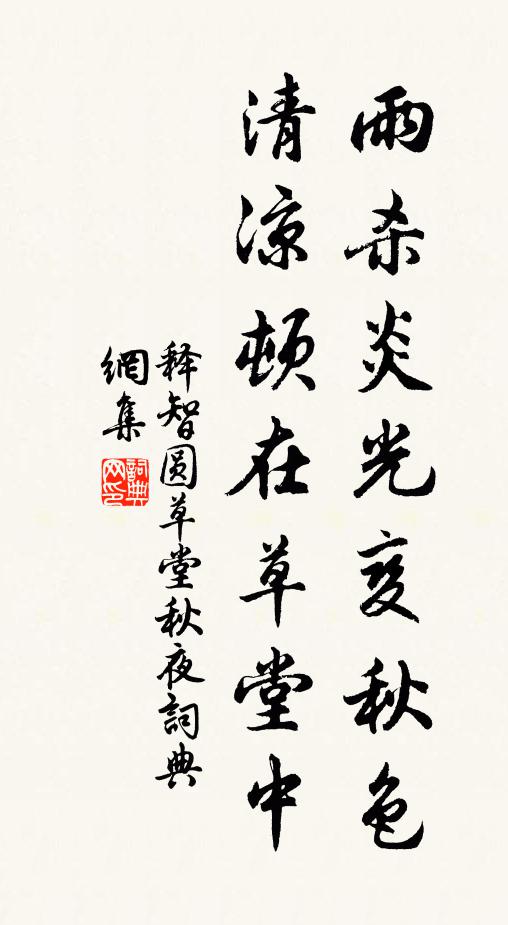 雨杀炎光变秋色
清凉顿在草堂中
释智圆草堂秋夜詞典
網集
詞典
网印